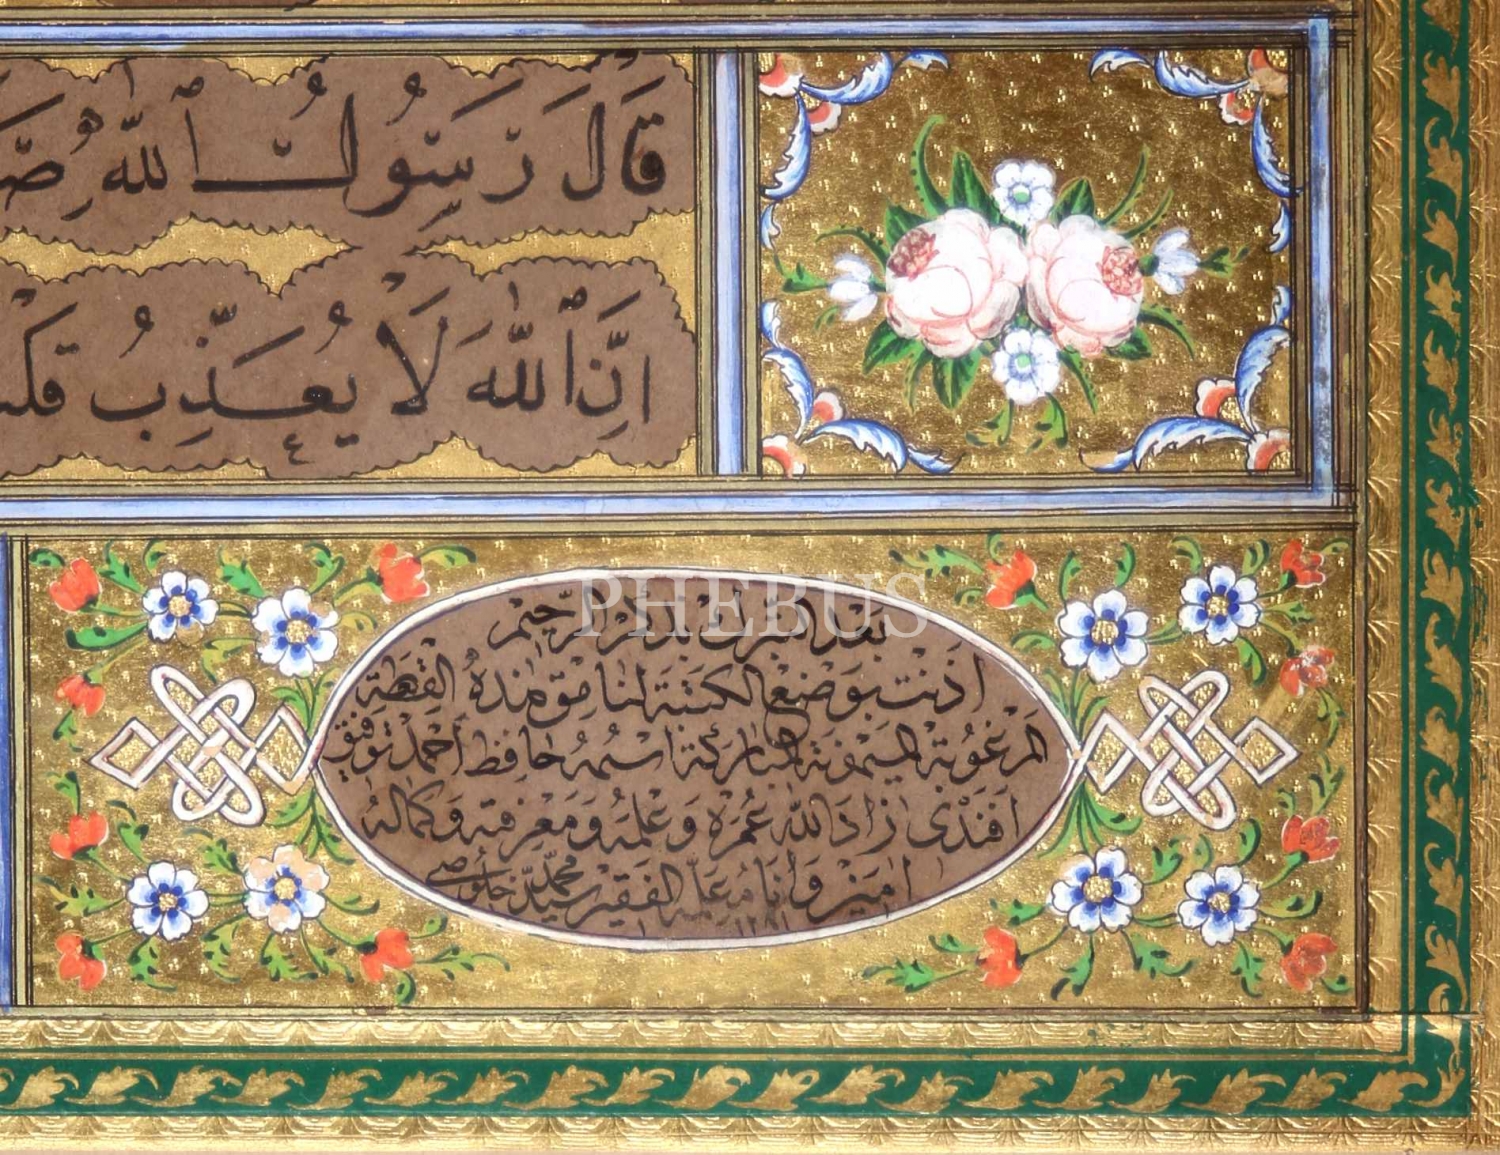 قَالَ رَسُولُ ٱللّٰهِ
اِنَّ ٱللّٰهَ لَا يُعَذِّبُ
PHEBUS
بعد التبرك بذكر الرحيم
اذنت بوضع الكتبة لنامق هذه القطعة
المرغوبة الميمونة المباركة اسمه حافظ احمد توفيق
افندى زاد الله عمره وعلمه ومعرفته وكماله
امين وأنا معلمه الفقير سيد محمد خلوصى